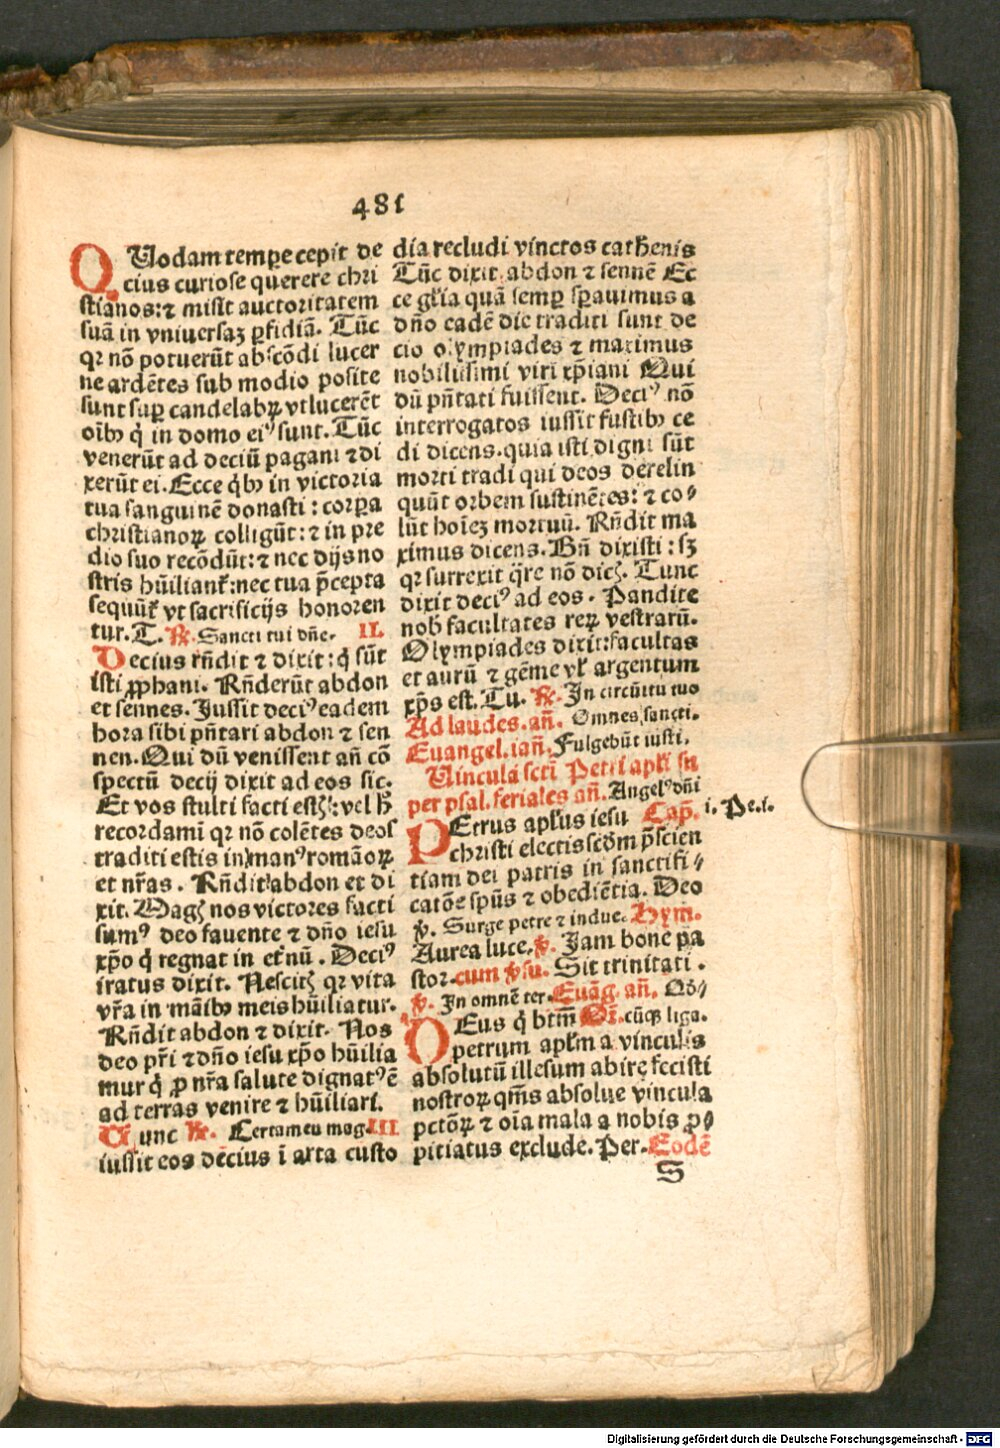 481
QUodam tempe cepit de
cius curiose querere chri
stianos: ⁊ misit auctoritatem
suā in vniuersaʒ ꝑfidiā. Tūc
qꝛ nō potuerūt abscōdi lucer
ne ardētes sub modio posite
sunt suꝑ candelabꝝ vt lucerēt
oībꝰ q̇ in domo eiꝰ sunt. Tūc
venerūt ad deciū pagani ⁊ di
xerūt ei. Ecce q̇bꝰ in victoria
tua sanguinē donasti: corꝑa
christianoꝝ colligūt: ⁊ in pre
dio suo recōdūt: ⁊ nec dijs no
stris hūiliant᷑: nec tua p̄cepta
sequūt᷑ vt sacrificijs honoren
tur. T. ℟. Sancti tui dn̄e. II.
Decius rn̄dit ⁊ dixit: q̇ sūt
isti ꝓphani. Rn̄derūt abdon
et sennes. Jussit deciꝰ eadem
hora sibi pn̄tari abdon ⁊ sen
nen. Qui dū venissent an̄ cō
spectū decij dixit ad eos sic.
Et vos stulti facti estꝭ: vel h̄
recordamī qꝛ nō colētes deos
traditi estis in manꝰ romāoꝝ
et nr̄as. Rn̄dit abdon et di
xit. Magꝭ nos victores facti
sumꝰ deo fauente ⁊ dn̄o iesu
xp̄o q̇ regnat in et᷑nū. Deciꝰ
iratus dixit. Nescitꝭ qꝛ vita
vr̄a in māibꝰ meis hūiliatur.
Rn̄dit abdon ⁊ dixit. Nos
deo pr̄i ⁊ dn̄o iesu xp̄o hūilia
mur q̇ ꝓ nr̄a salute dignatꝰ ē
ad terras venire ⁊ hūiliari.
Tunc ℟. Certamen mag. III
iussit eos decius ī arta custo
dia recludi vinctos cathenis
Tūc dixit abdon ⁊ sennē Ec
ce gl̄ia quā semꝑ sꝑauimus a
dn̄o eadē die traditi sunt de
cio olympiades ⁊ maximus
nobilissimi viri xp̄iani Qui
dū pn̄tati fuissent. Deciꝰ nō
interrogatos iussit fustibꝰ ce
di dicens. quia isti digni sūt
morti tradi qui deos derelin
quūt orbem sustinētes: ⁊ co⸗
lūt hoīeʒ mortuū. Rn̄dit ma
ximus dicens. Bn̄ dixisti: sʒ
qꝛ surrexit q̄re nō dicꝭ. Tunc
dixit deciꝰ ad eos. Pandite
nob̄ facultates reꝝ vestrarū.
Olympiades dixit: facultas
et aurū ⁊ gēme vl̄ argentum
xp̄s est. Tu. ℟. In circūitu tuo
Ad laudes. an̄. Omnes sancti.
Euangel. ian̄. Fulgebūt iusti.
Uincula scti Petri apl̄i sn
per psal. feriales an̄. Angelꝰ dn̄i
PEtrus apl̄us iesu Cap̄. i. Pe. i.
christi electis scd̄m p̄scien
tiam dei patris in sanctifi⸗
catōe sp̄us ⁊ obediētia. Deo
℣. Surge petre ⁊ indue. Hym.
Aurea luce. ℣. Jam bone pa
stor. cum ℣su. Sit trinitati.
℣. In omnē ter. Euāg. an̄. Qd̄⸗
DEus q̇ btm̄ Or̄. cūqꝫ liga.
petrum apl̄m a vinculis
absolutū illesum abire fecisti
nostroꝝ qm̄s absolue vincula
pctōꝝ ⁊ oīa mala a nobis ꝓ⸗
pitiatus exclude. Per. Eodē
S
Digitalisierung gefördert durch die Deutsche Forschungsgemeinschaft - DFG